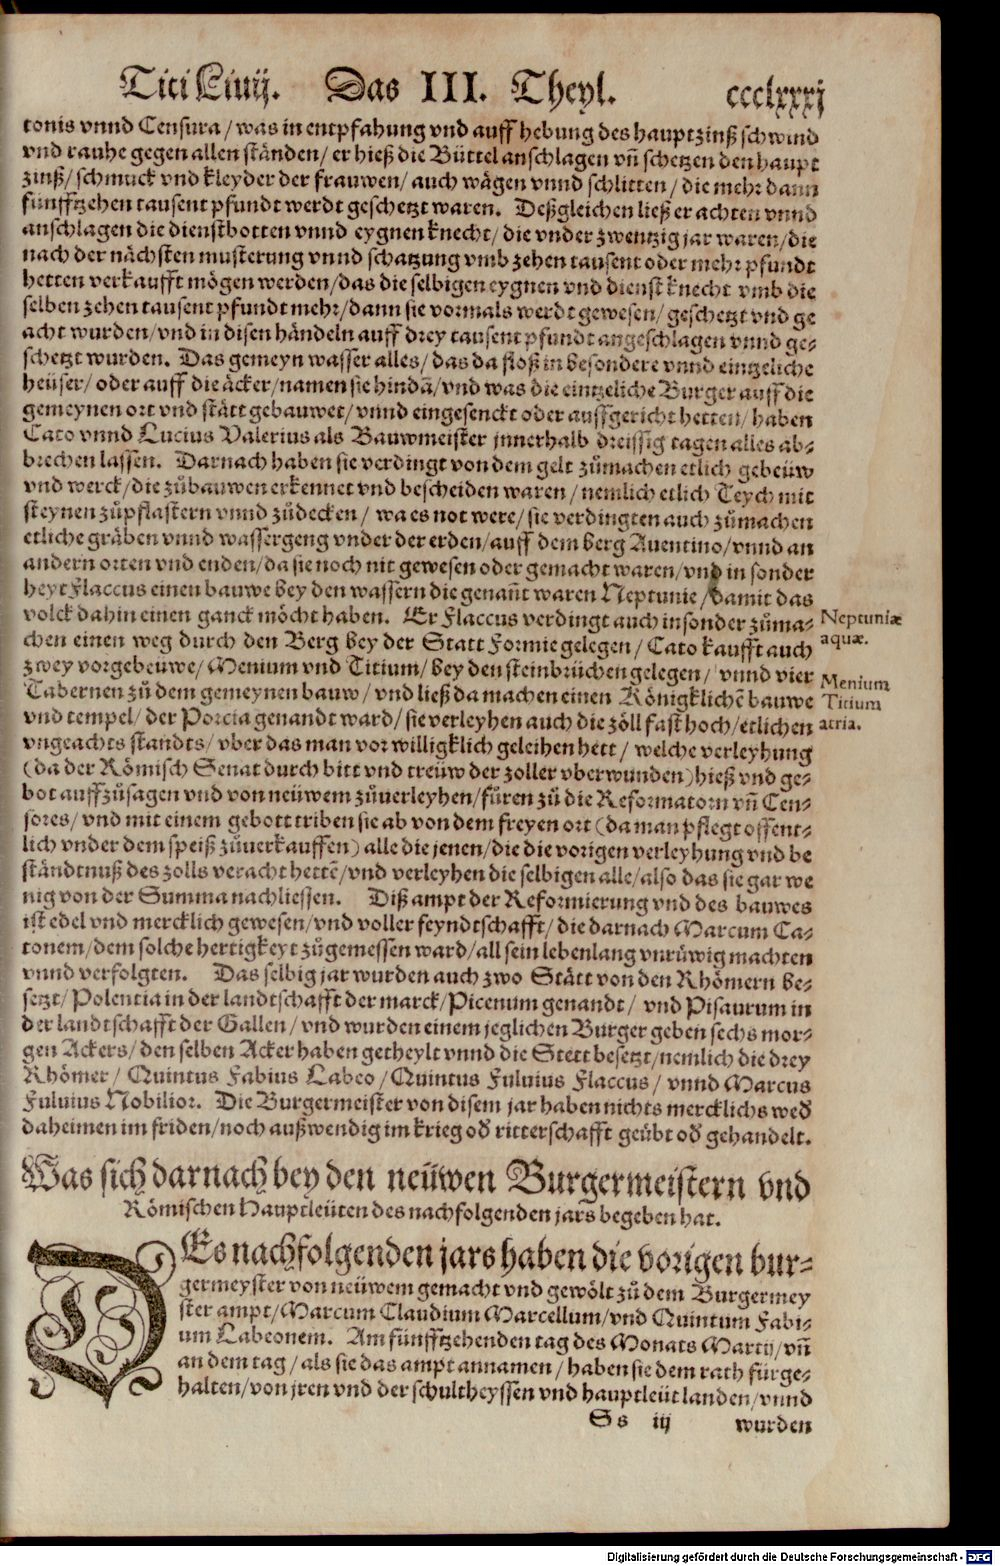 Titi Liuij. Das III. Theyl. ccclxxxj
tonis vnnd Censura / was in entpfahung vnd auff hebung des hauptzinß schwind
vnd rauhe gegen allen ständen / er hieß die Büttel anschlagen vñ schetzen den haupt
zinß / schmuck vnd kleyder der frauwen / auch wägen vnnd schlitten / die mehr dann
fünfftzehen tausent pfundt werdt geschetzt waren. Deßgleichen ließ er achten vnnd
anschlagen die dienstbotten vnnd eygnen knecht / die vnder zwentzig jar waren / die
nach der nächsten musterung vnnd schatzung vmb zehen tausent oder mehr pfundt
hetten verkaufft mögen werden / das die selbigen eygnen vnd dienst knecht vmb die
selben zehen tausent pfundt mehr / dann sie vormals werdt gewesen / geschetzt vnd ge
acht wurden / vnd in disen händeln auff drey tausent pfundt angeschlagen vnnd ge-
schetzt wurden. Das gemeyn wasser alles / das da floß in besondere vnnd eintzeliche
heüser / oder auff die äcker / namen sie hindã / vnd was die eintzeliche Burger auff die
gemeynen ort vnd stätt gebauwet / vnnd eingesenckt oder auffgericht hetten / haben
Cato vnnd Lucius Valerius als Bauwmeister jnnerhalb dreissig tagen alles ab-
brechen lassen. Darnach haben sie verdingt von dem gelt zůmachen etlich gebeüw
vnd werck / die zůbauwen erkennet vnd bescheiden waren / nemlich etlich Teych mit
steynen zůpflastern vnnd zůdecken / wa es not were / sie verdingten auch zůmachen
etliche gräben vnnd wassergeng vnder der erden / auff dem berg Auentino / vnnd an
andern orten vnd enden / da sie noch nit gewesen oder gemacht waren / vnd in sonder
heyt Flaccus einen bauwe bey den wassern die genañt waren Neptunie / damit das
volck dahin einen ganck möcht haben. Er Flaccus verdingt auch insonder zůma-
chen einen weg durch den Berg bey der Statt Formie gelegen / Cato kaufft auch
zwey vorgebeüwe / Menium vnd Titium / bey den steinbrüchen gelegen / vnnd vier
Tabernen zů dem gemeynen bauw / vnd ließ da machen einen Königklichẽ bauwe
vnd tempel / der Porcia genandt ward / sie verleyhen auch die zöll fast hoch / etlichen
vngeachts standts / vber das man vor willigklich geleihen hett / welche verleyhung
(da der Römisch Senat durch bitt vnd treüw der zoller vberwunden) hieß vnd ge-
bot auffzůsagen vnd von neüwem zůuerleyhen / fůren zů die Reformatorn vñ Cen-
sores / vnd mit einem gebott triben sie ab von dem freyen ort (da man pflegt offent-
lich vnder dem speiß zůuerkauffen) alle die jenen / die die vorigen verleyhung vnd be
ständtnuß des zolls veracht hettẽ / vnd verleyhen die selbigen alle / also das sie gar we
nig von der Summa nachliessen. Diß ampt der Reformierung vnd des bauwes
ist edel vnd mercklich gewesen / vnd voller feyndtschafft / die darnach Marcum Ca-
tonem / dem solche hertigkeyt zůgemessen ward / all sein lebenlang vnrüwig machten
vnnd verfolgten. Das selbig jar wurden auch zwo Stätt von den Rhömern be-
setzt / Polentia in der landtschafft der marck / Picenum genandt / vnd Pisaurum in
der landtschafft der Gallen / vnd wurden einem jeglichen Burger geben sechs mor-
gen Ackers / den selben Acker haben getheylt vnnd die Stett besetzt / nemlich die drey
Rhömer / Quintus Fabius Labeo / Quintus Fuluius Flaccus / vnnd Marcus
Fuluius Nobilior. Die Burgermeister von disem jar haben nichts mercklichs wed
daheimen im friden / noch außwendig im krieg od ritterschafft geübt od gehandelt.
Neptuniæ
aquæ.
Menium
Titium
atria.
Was sich darnach bey den neüwen Burgermeistern vnd
Römischen Hauptleüten des nachfolgenden jars begeben hat.
DEs nachfolgenden jars haben die vorigen bur-
germeyster von neüwem gemacht vnd gewölt zů dem Burgermey
ster ampt / Marcum Claudium Marcellum / vnd Quintum Fabi-
um Labeonem. Am fünfftzehenden tag des Monats Martij / vñ
an dem tag / als sie das ampt annamen / haben sie dem rath fürge-
halten / von jren vnd der schultheyssen vnd hauptleüt landen / vnnd
Ss iij wurden
Digitalisierung gefördert durch die Deutsche Forschungsgemeinschaft - DFG